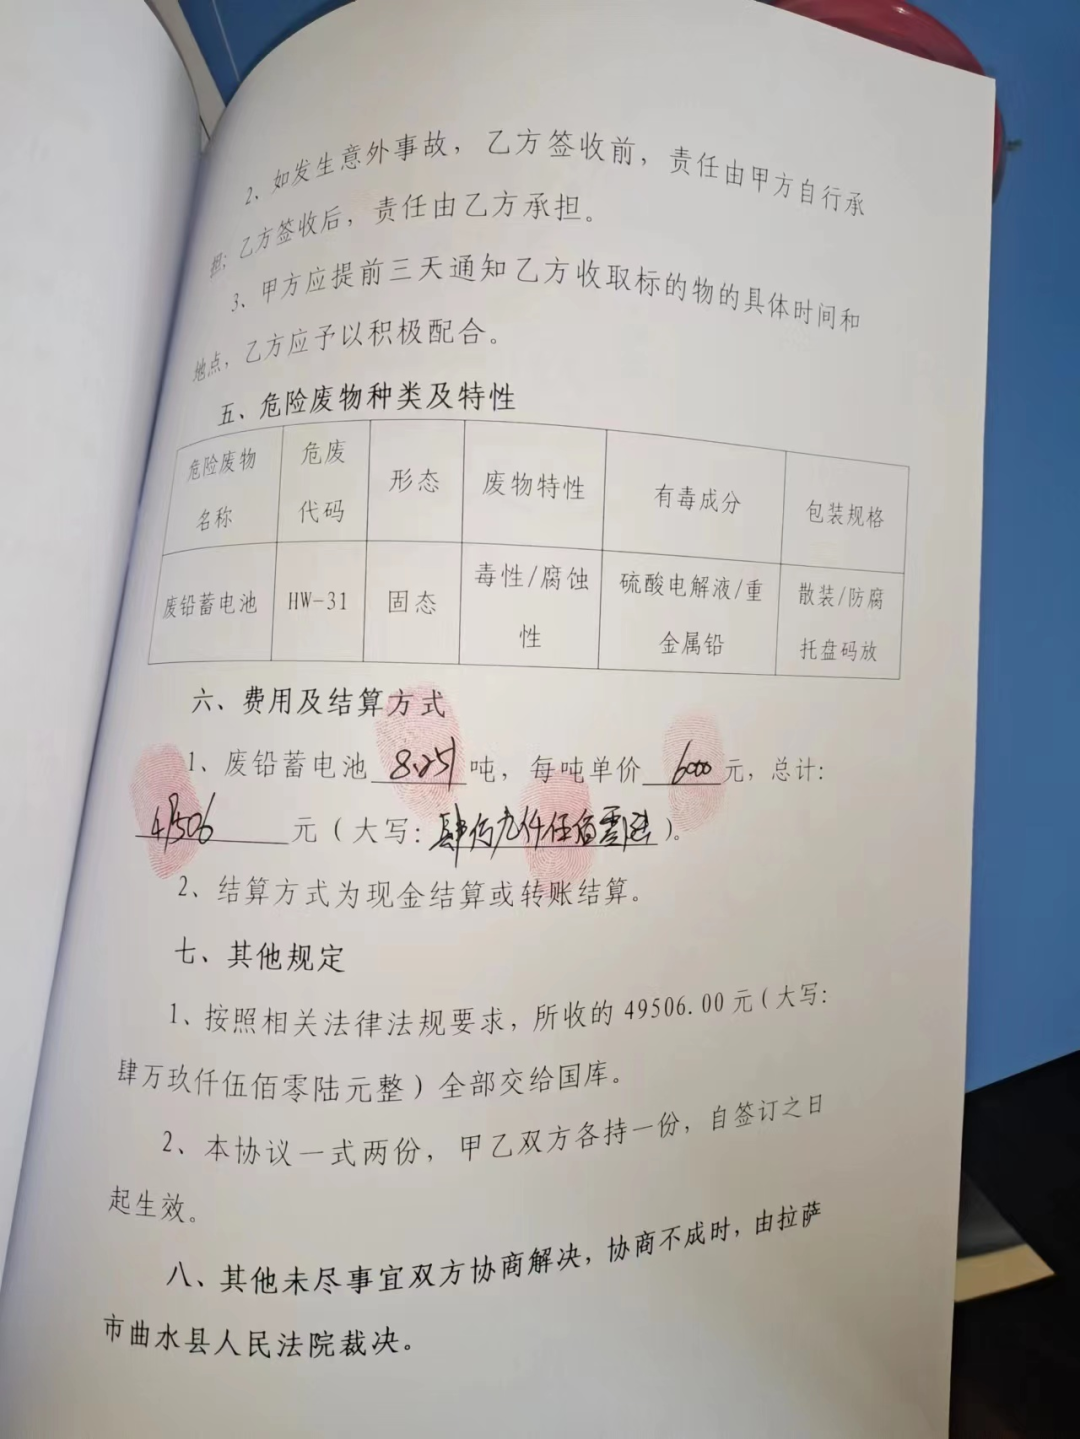 2、如发生意外事故，乙方签收前，责任由甲方自行承
担；乙方签收后，责任由乙方承担。
3、甲方应提前三天通知乙方收取标的物的具体时间和
地点，乙方应予以积极配合。
五、危险废物种类及特性
危险废物名称 危废代码 形态 废物特性 有毒成分 包装规格
废铅蓄电池 HW-31 固态 毒性/腐蚀性 硫酸电解液/重金属铅 散装/防腐托盘码放
六、费用及结算方式
1、废铅蓄电池 8.251 吨，每吨单价 6000 元，总计：
49506 元（大写：肆万九仟伍佰零陆）。
2、结算方式为现金结算或转账结算。
七、其他规定
1、按照相关法律法规要求，所收的 49506.00 元（大写：
肆万玖仟伍佰零陆元整）全部交给国库。
2、本协议一式两份，甲乙双方各持一份，自签订之日
起生效。
八、其他未尽事宜双方协商解决，协商不成时，由拉萨
市曲水县人民法院裁决。